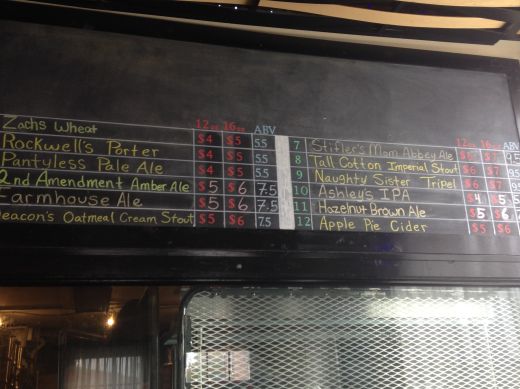 12oz 16oz ABV
Zachs Wheat $4 $5 5.5
Rockwell's Porter $4 $5 5.5
Pantyless Pale Ale $4 $5 5.5
2nd Amendment Amber Ale $5 $6 7.5
Farmhouse Ale $5 $6 7.5
Deacon's Oatmeal Cream Stout $5 $6 7.5
12oz 16oz ABV
7 Stifler's Mom Abbey Ale $6 $7
8 Tall Cotton Imperial Stout $6 $7
9 Naughty Sister Tripel $6 $7
10 Ashley's IPA $4 $5
11 Hazelnut Brown Ale $5 $6
12 Apple Pie Cider $5 $6